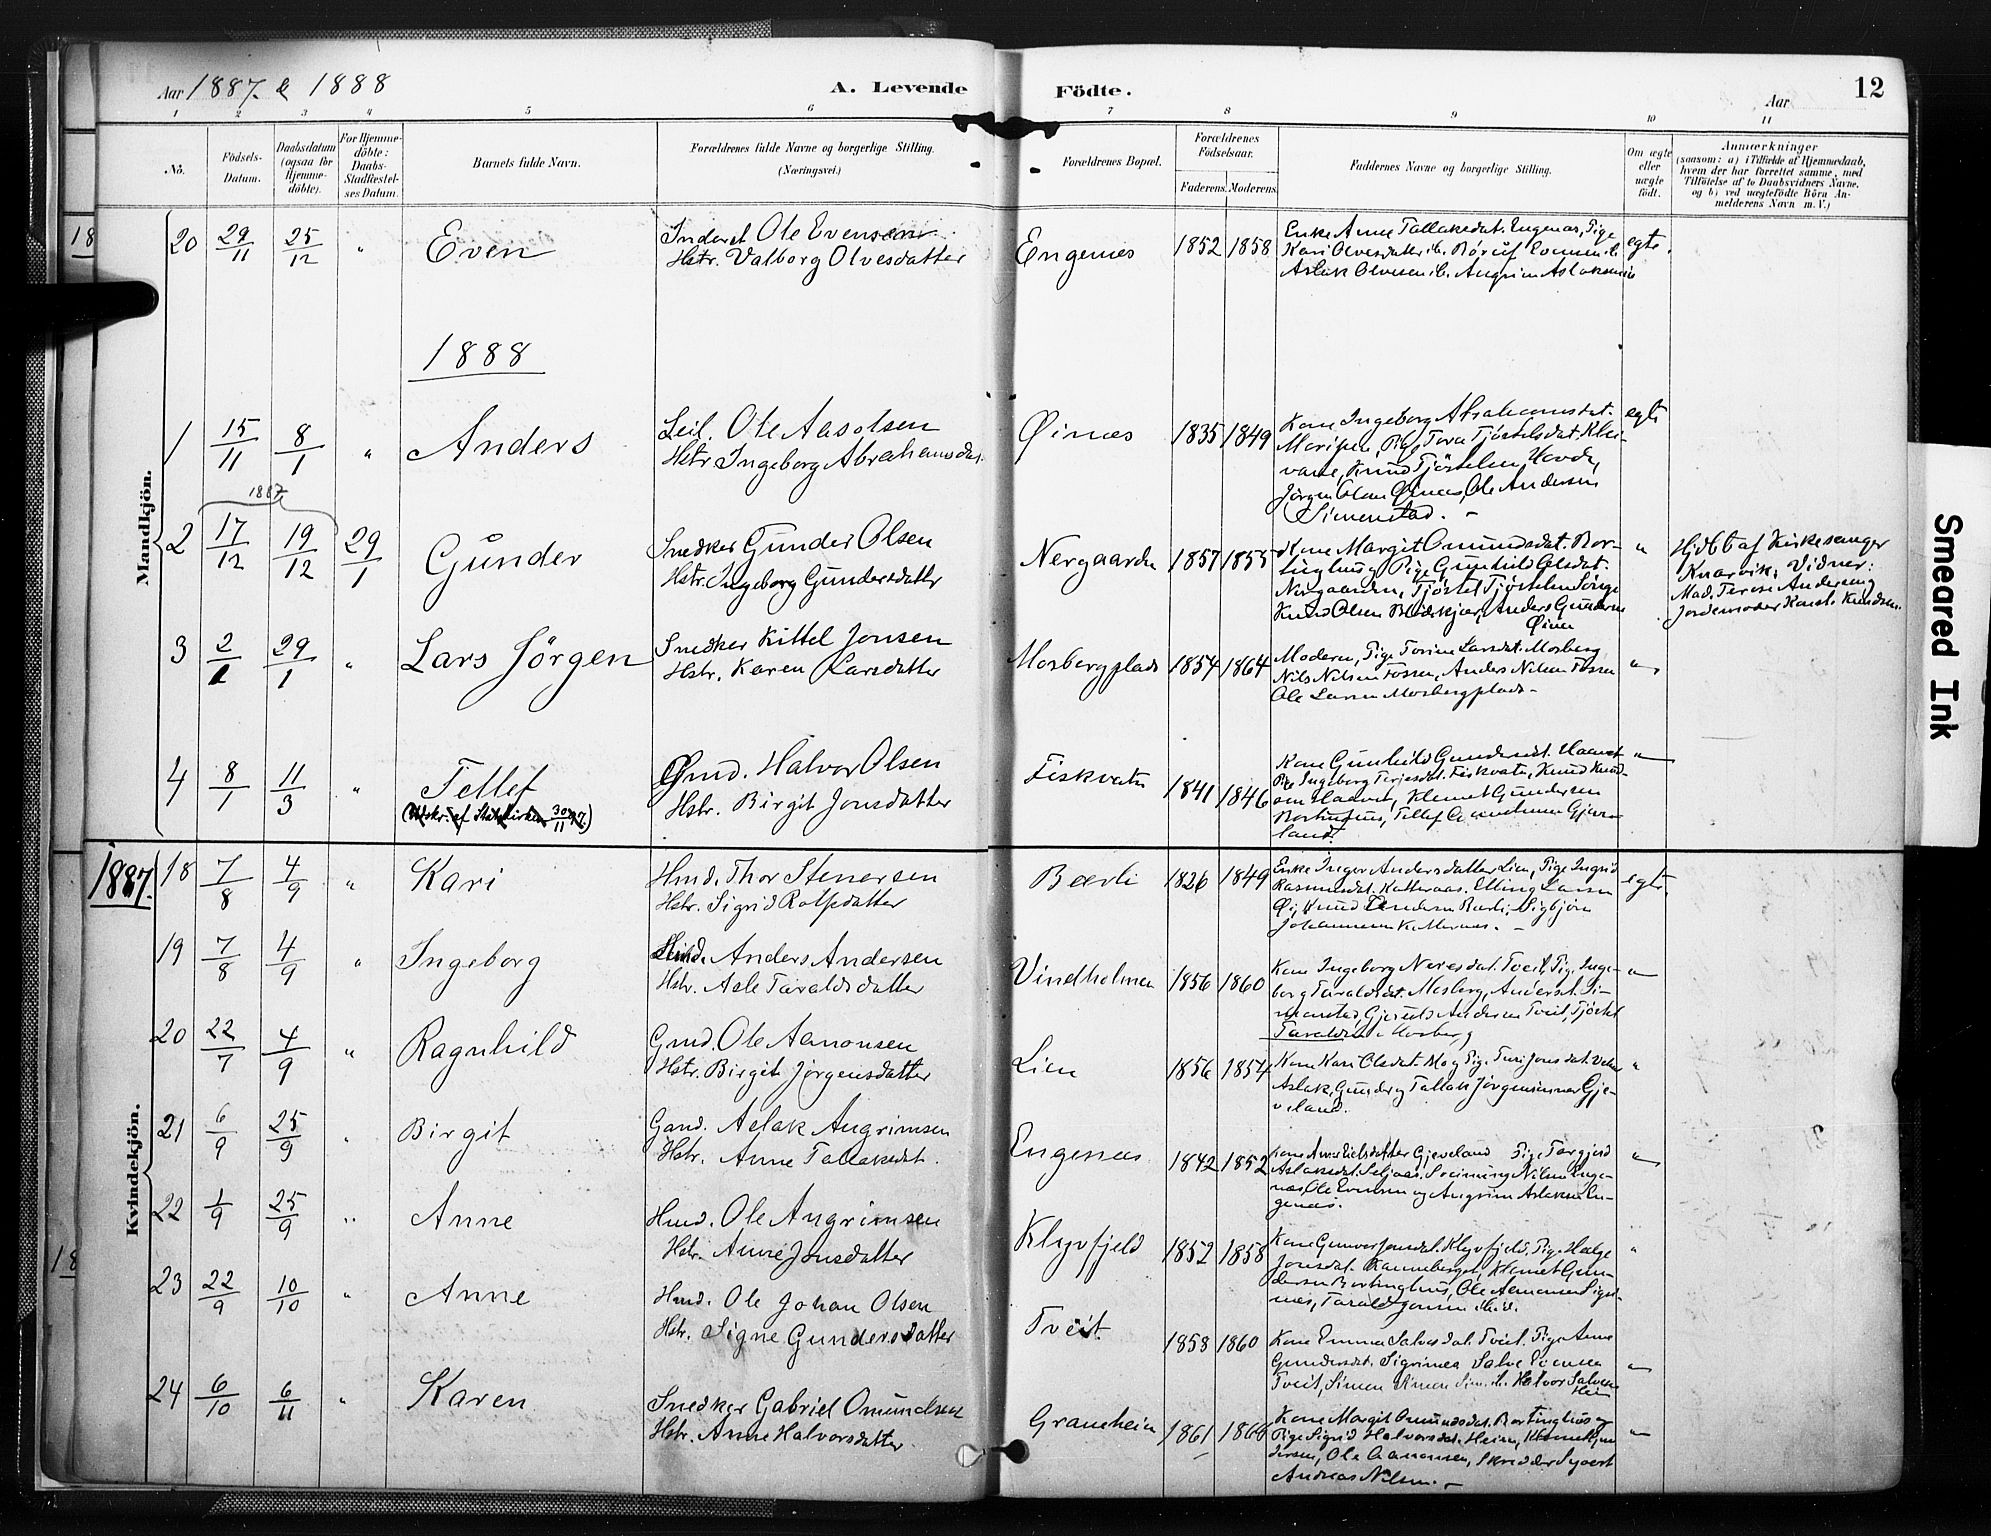 Aar 1887 & 1888
A. Levende
Födte.
Aar
12
1 2 3 4 5 6 7 8 9 10 11
No.
Födsels-Datum.
Daabsdatum (ogsaa for Hjemmedöbte).
For Hjemmedöbte: Daabs-Stadfæstelses Datum.
Barnets fulde Navn.
Forældrenes fulde Navne og borgerlige Stilling. (Næringsvei.)
Forældrenes Bopæl.
Forældrenes Födselsaar.
Faderens. Moderens.
Faddernes Navne og borgerlige Stilling.
Om ægte eller uægte födt.
Anmærkninger
(saasom: a) i Tilfælde af Hjemmedaab, hvem der har forrettet samme, med Tilföielse af to Daabsvidners Navne, og b) ved uægtefödte Börn Anmelderens Navn m. V.)
18
Mandkjön.
20 29/11 25/12 " Even
Inderst Ole Evensen
Hstr. Valborg Olvesdatter
Engenes 1852 1858
Enke Anne Tallaksdat. Engenæs, Pige
Kari Olvesdatter
Aslak Olvesen ib. Angrim Aslaksen
egte.
1888
1 15/11 8/1 " Anders
Leil. Ole Aasolsen
Hstr. Ingeborg Abrahamsdat.
Øinæs 1835 1849
Kone Ingeborg Abrahamsdat.
Pige Tora Tjøstelsdat.
Knud Tjøstelsen Hovde,
Jörgen Olsen Øinæs, Ole Andersen
Simenstad. -
egte
1887
2 17/12 19/12 29/1 Gunder
Snedker Gunder Olsen
Hstr. Ingeborg Gundersdatter
Nergaarden 1857 1855
Kone Margit Omundsdat. Bor-
tinghus, Pige Gunhild Olsdat.
Nergaarden, Tjöstel Tjöstelsen
Knud Olsen Anders Gundersen
Øinæs
"
Hjdbt af Kirkesanger
Knarvik. Vidner:
Mad. Terese Andersen og
Jordemoder Knudsen.
3 2/1 29/1 " Lars Jörgen
Snedker Kittel Jonsen
Hstr. Karen Larsdatter
Mosbergplads 1854 1864
Moderen, Pige Torine Larsdat. Mosberg,
Nils Nilsen Fossen, Anders Nilsen Fossen
Ole Larsen Mosbergplads -
"
4 8/1 11/3 " Tellef
(Udskr. af Statskirken 30/11 97.)
Gmd. Halvor Olsen
Hstr. Birgit Jonsdatter
Fiskvatn 1841 1846
Kone Gunhild Gundersdat.
Pige Ingeborg Terjesdat. Fiskvatn, Knud Knud-
sen Klemet Gundersen
Bortinghus, Tellef
land.
"
1887.
Kvindekjön.
18 7/8 4/9 " Kari
Hmd. Thor Stenersen
Hstr. Sigrid Rolfsdatter
Beerli 1826 1849
Enke Inger Andersdatter Lien, Pige Ingrid
Rasmusdat. Elling Larsen
Øi, Knud Sigbjörn
Johannesen
egte.
19 7/8 4/9 " Ingeborg
Anders Andersen
Hstr. Asle Taraldsdatter
Vindholmen 1856 1860
Kone Ingeborg Tveit, Pige Inge-
borg Taraldsdat. Mosberg, Anders A. Si-
menstad, Andersen Tveit, Tjöstel
Taraldsen Mosberg
"
20 22/7 4/9 " Ragnhild
Gmd. Ole Aanonsen
Hstr. Birgit Jörgensdatter
Lien 1856 1854
Kone Kari Olsdat. Pige Turi Jonsdat.
Aslak, Gunder og Tallak Jörgensönner Gje-
veland.
"
21 6/9 25/9 " Birgit
Gmd. Aslak Angrimsen
Hstr. Anne Tallaksdat.
Engenæs 1842 1852
Kone Anne Gjeveland Pige Torgjerd
Aslaksdat. Nilsen Enge-
næs, Ole Evensen og Angrim Aslaksen En-
genæs.
"
22 1/9 25/9 " Anne
Hmd. Ole Angrimsen
Hstr. Anne Jonsdatter
Klyvfjeld 1852 1858
Kone Gunvor Jonsdat. Klyvfjeld, Pige Helge
Jonsdat. Klemet Gun-
dersen Bortinghus, Ole Aanonsen
næs, Tarald Jonsen
"
23 22/9 10/10 " Anne
Hmd. Ole Johan Olsen
Hstr. Signe Gundersdatter
Tveit 1858 1860
Kone Emma Salvesdat. Tveit. Pige Anne
Gundersdat. Salve Evensen
Tveit, Simen Halvor Salvesen
Hein
"
24 6/10 6/11 " Karen
Snedker Gabriel Omundsen
Hstr. Anne Halvorsdatter.
Graneheia 1861 1866
Kone Margit Omundsdat. Bortinghus og
Pige Sigrid Halvorsdat. Heien, Klemet Gun-
dersen, Ole Aanonsen, Skrædder Syvert
Andreas Nilsen. -
"
18
Smeared Ink